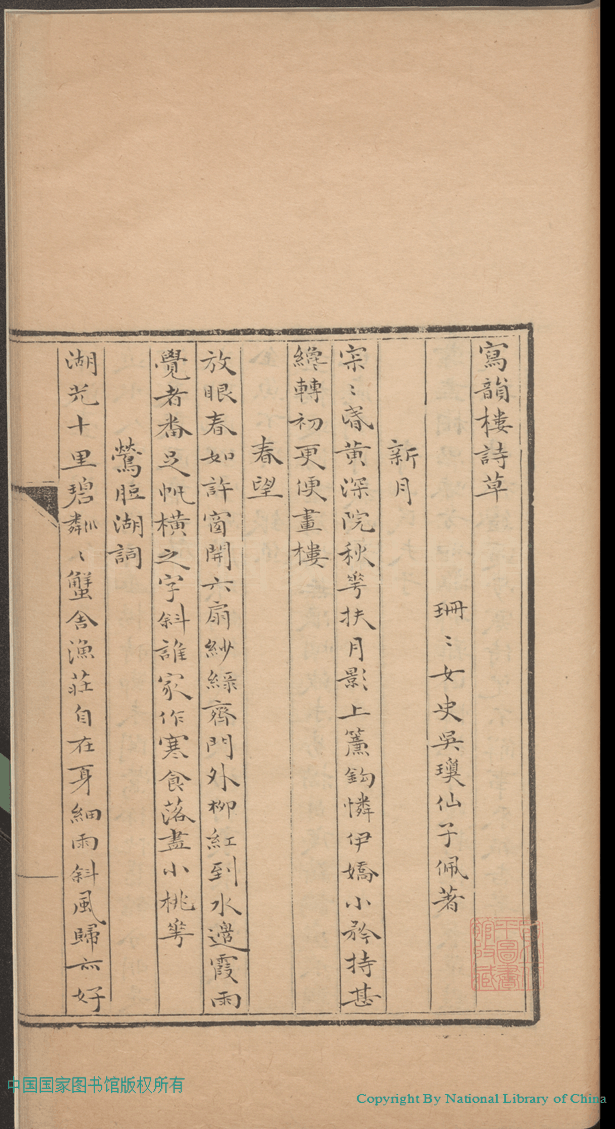 寫韻樓詩草
珊〻女史吳瓊仙子佩著
新月
寀〻昏黃深院秋花扶月影上簾鈎憐伊嬌小矜持甚
纔轉初更便畫樓
春望
放眼春如許窗開六扇紗綠齊門外柳紅到水邊霞雨
覺者番足帆橫之字斜誰家作寒食落盡小桃花
鶯脰湖詞
湖光十里碧粼〻蟹舍漁莊自在身細雨斜風歸亦好
中国国家图书馆版权所有
Copyright By National Library of China